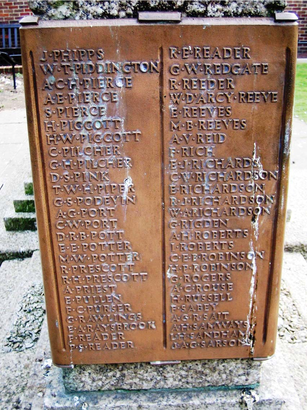 J·PHIPPS
W·T·PIDDINGTON
A·C·H·PIERCE
A·E·PIERCE
S·PIERCE
H·PIGGOTT
H·W·PIGGOTT
C·PILCHER
G·H·PILCHER
D·S·PINK
T·W·H·PIPER
G·S·PODEVIN
A·G·PORT
G·W·PORT
D·R·B·PORT
E·E·POTTER
M·W·POTTER
R·PRESCOTT
R·H·PRESCOTT
A·PRIEST
E·PULLEN
F·C·PURSER
A·RAWLINGS
E·A·RAYSBROOK
E·READER
P·S·READER
R·E·READER
G·W·REDGATE
R·REEDER
W·DARCY·REEVE
E·REEVES
M·B·REEVES
A·V·REID
F·RICH
A·J·RICHARDS
C·W·RICHARDSON
E·RICHARDSON
R·J·RICHARDSON
W·A·RICHARDSON
G·RIGDEN
A·J·ROBERTS
J·ROBERTS
C·F·E·ROBINSON
G·P·ROBINSON
G·ROGERS
A·CROUSE
H·RUSSELL
F·SABEY
A·G·R·SAIT
J·A·G·SARSON